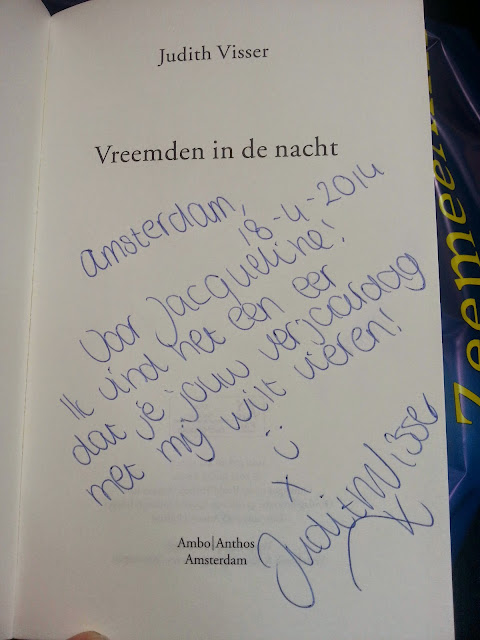 Judith Visser
Vreemden in de nacht
Amsterdam,
18-4-2014
Voor Jacqueline!
Ik vind het een eer
dat je jouw verjaardag
met mij wilt vieren!
x :)
Judith Visser
x
Ambo|Anthos
Amsterdam
Zeemeermin